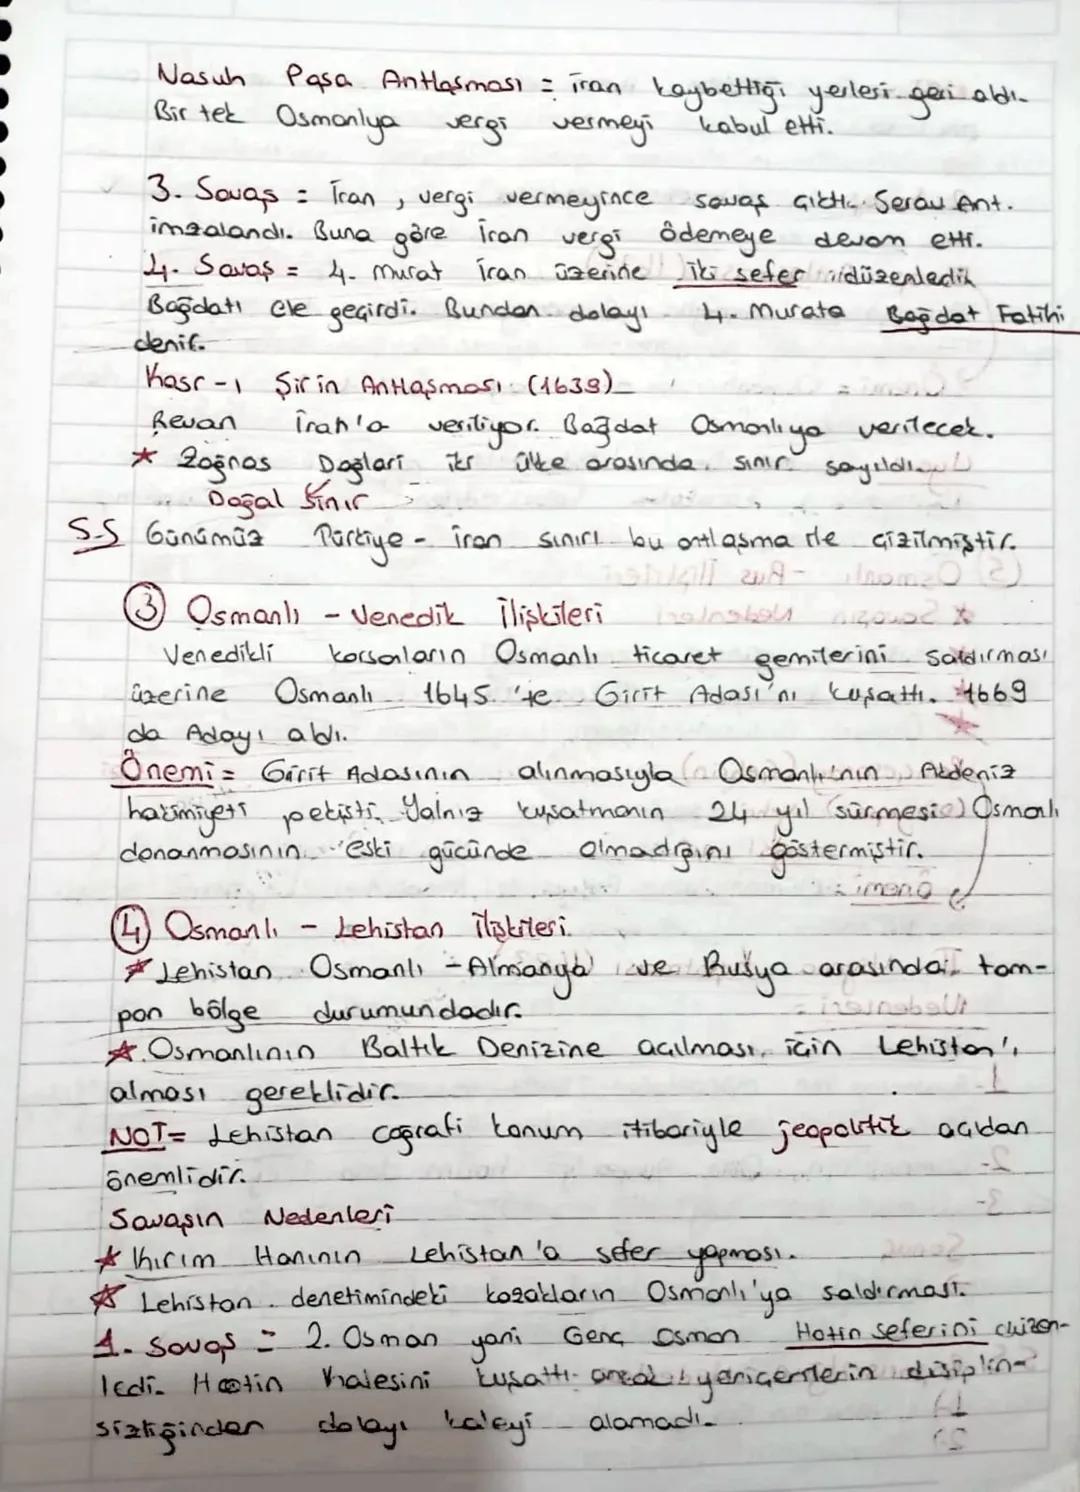 Nasuh Paşa Antlaşması = İran kaybettiği yerleri geri aldı.
Bir tek Osmanlya vergi vermeyi kabul etti.
3. Savaş = İran, vergi vermeyince savaş çıktı. Serav Ant.
imzalandı. Buna göre İran vergi ödemeye devam etti.
4. Savaş = 4. Murat İran üzerine iki sefer düzenledik
Bağdatı ele geçirdi. Bundan dolayı 4. Murata Bağdat Fatihi
denir.
Kasr-ı Şirin Antlaşması (1639)
Revan İran'a veriliyor. Bağdat Osmanlıya verilecek.
* Zağros Dağları iki ülke arasında sınır sayıldı.
Doğal Sınır
S.S Günümüz Türkiye - İran sınırı bu antlaşma ile çizilmiştir.
3 Osmanlı - Venedik İlişkileri
Venedikli korsanların Osmanlı ticaret gemilerini saldırması
üzerine Osmanlı 1645'te Girit Adası'nı kuşattı. 1669
da Adayı aldı.
Önemi = Girit Adasının alınmasıyla Osmanlı'nın Akdeniz
hakimiyeti pekişti. Yalnız kuşatmanın 24 yıl sürmesi Osmanlı
donanmasının eski gücünde olmadığını göstermiştir.
4 Osmanlı - Lehistan İlişkileri
* Lehistan Osmanlı - Almanya ve Rusya arasında tam-
pon bölge durumundadır.
* Osmanlının Baltık Denizine açılması için Lehistan'ı
alması gereklidir.
NOT= Lehistan coğrafi konum itibariyle jeopolitik açıdan
önemlidir.
Savaşın Nedenleri
* Kırım Hanının Lehistan'a sefer yapması.
* Lehistan denetimindeki kozakların Osmanlı'ya saldırması.
1. Savaş = 2. Osman yani Genç Osman Hotin seferini düzen-
ledi. Hotin kalesini kuşattı ancak yeniçerilerin disiplin-
sizliğinden dolayı kaleyi alamadı.